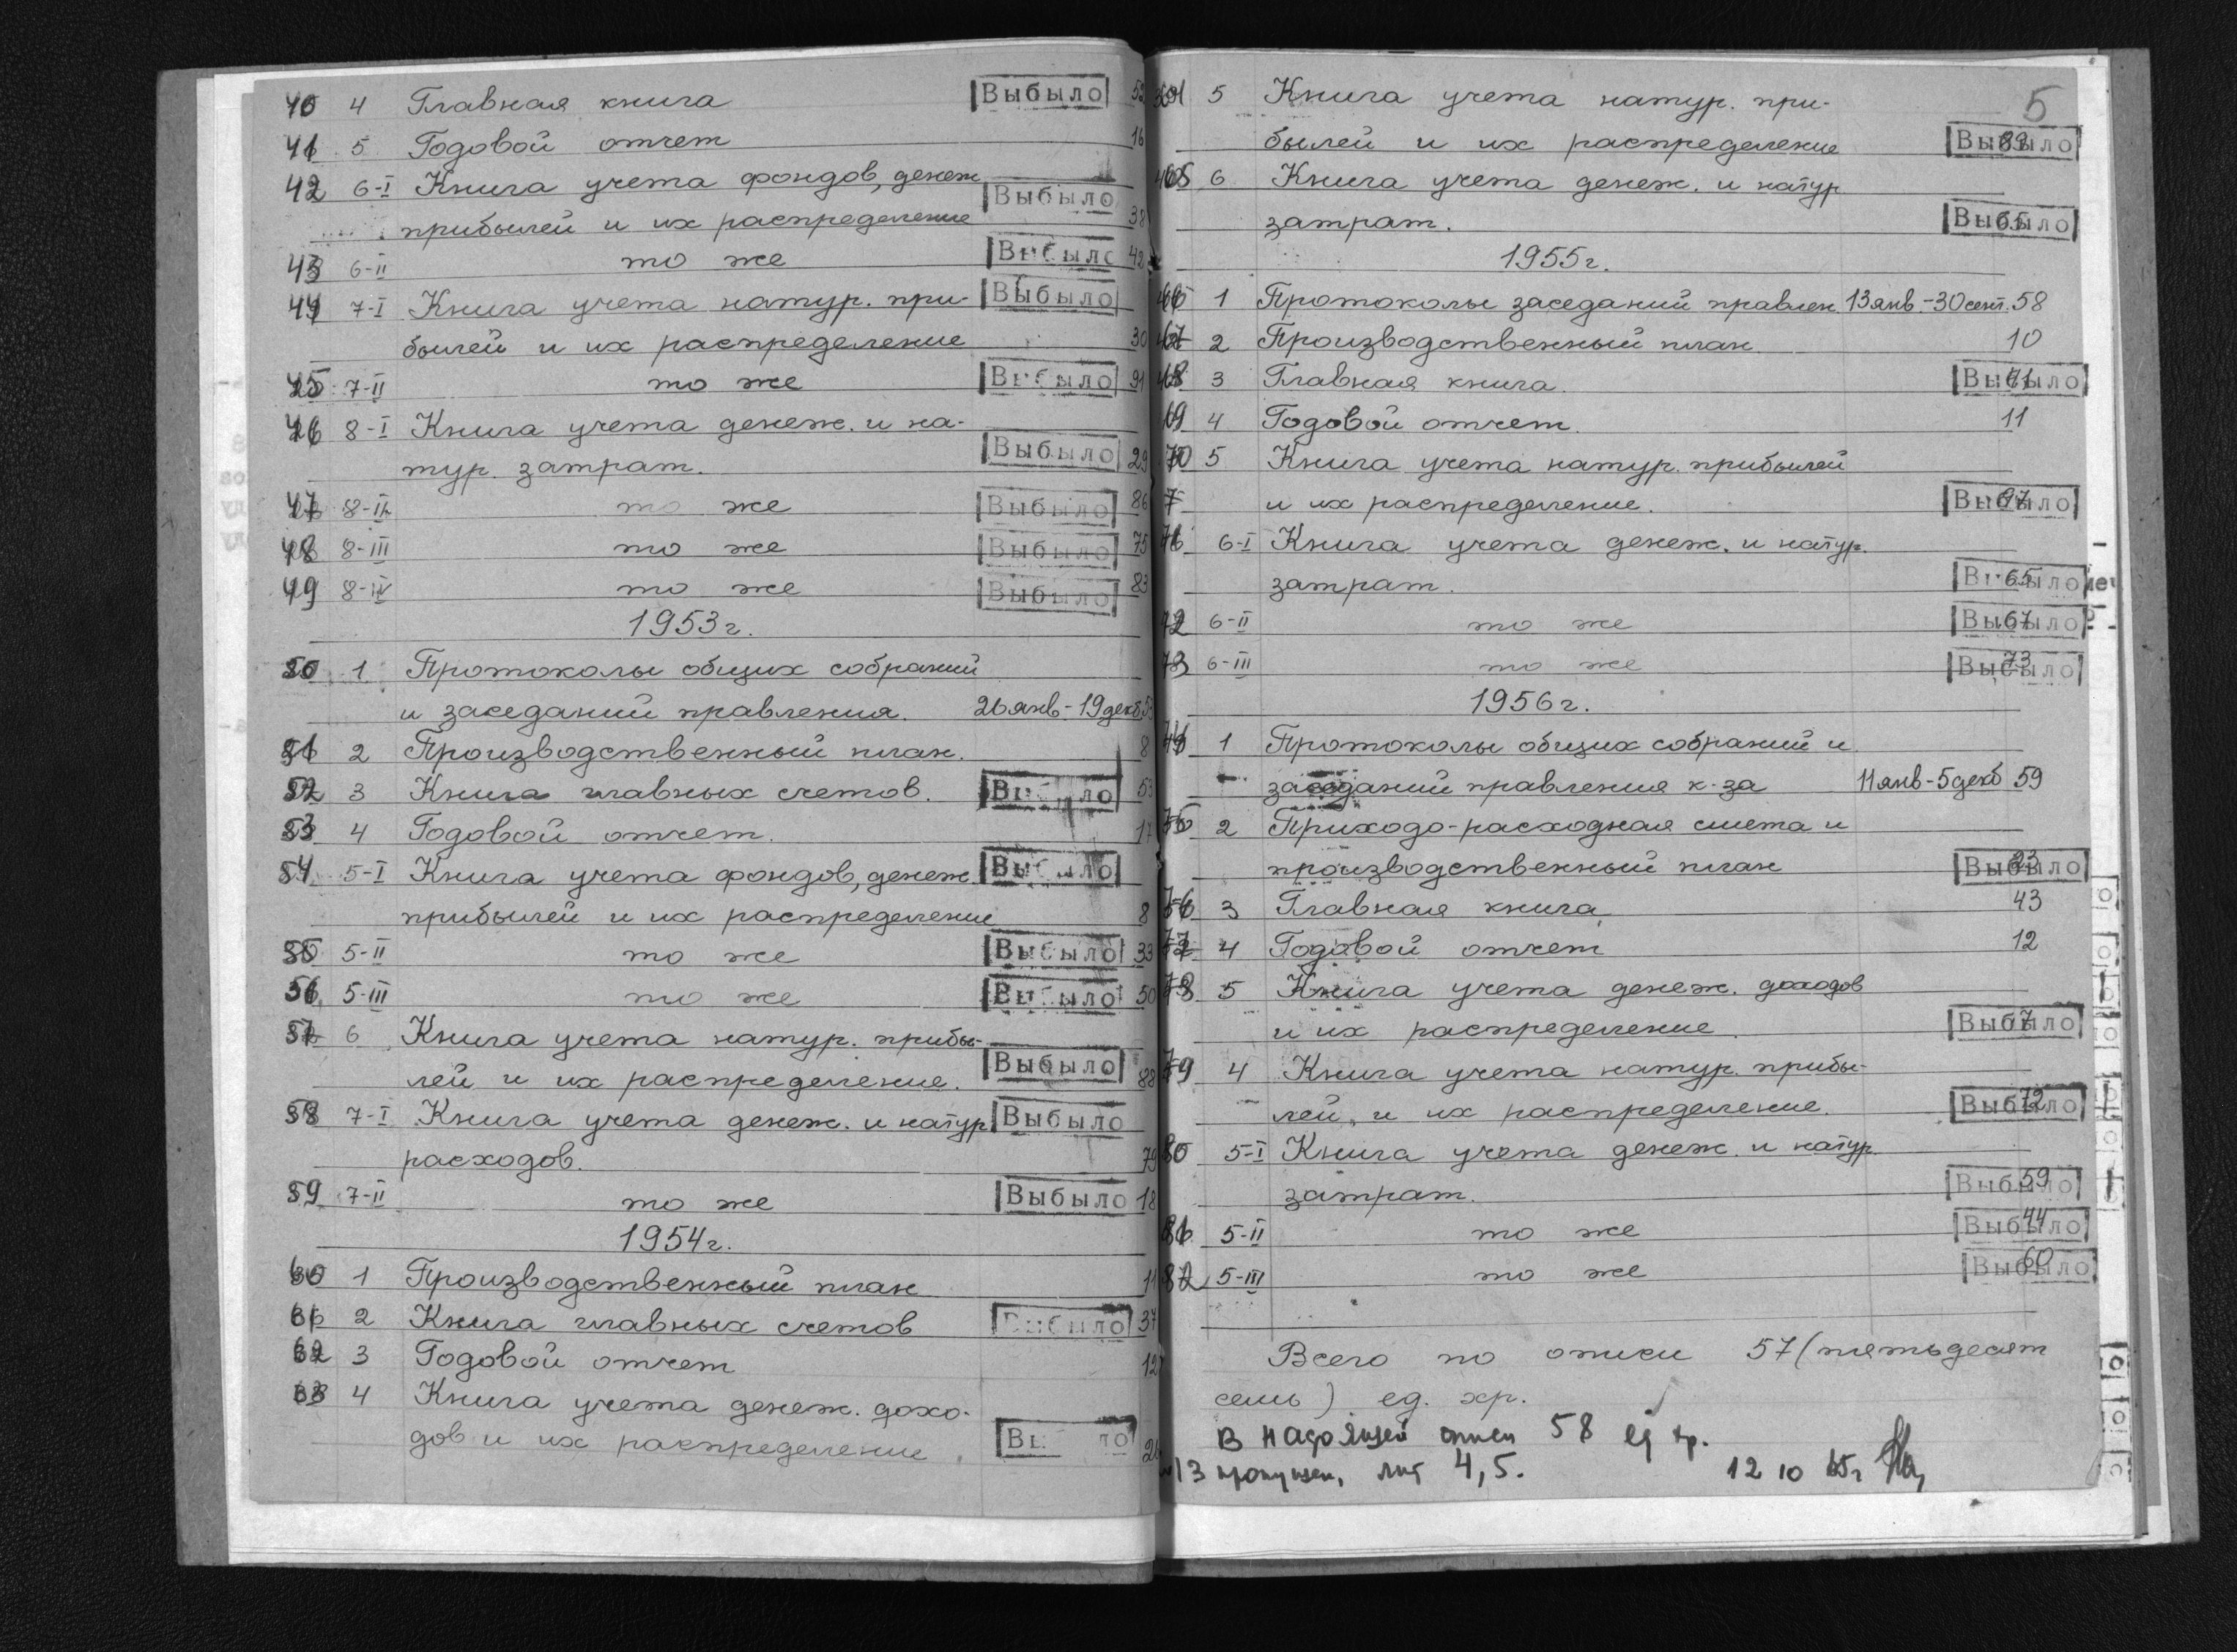 40 4 Главная книга Выбыло 52
41 5 Годовой отчет 16
42 6-I Книга учета фондов, денеж
прибылей и их распределение Выбыло 38
43 6-II то же Выбыло 42
44 7-I Книга учета натур. при- Выбыло
былей и их распределение 30
45 7-II то же Выбыло 91
46 8-I Книга учета денеж. и на-
тур. затрат. Выбыло 29
47 8-II то же Выбыло 86
48 8-III то же Выбыло 75
49 8-IV то же Выбыло 83
1953г.
50 1 Протоколы общих собраний
и заседаний правления. 26 янв-19 декб 53
51 2 Производственный план. 8
52 3 Книга главных счетов. Выбыло 53
53 4 Годовой отчет. 17
54 5-I Книга учета фондов, денеж. Выбыло
прибылей и их распределение 8
55 5-II то же Выбыло 33
56 5-III то же Выбыло 50
57 6 Книга учета натур. прибы-
лей и их распределение. Выбыло 88
58 7-I Книга учета денеж. и натур Выбыло
расходов. 79
59 7-II то же Выбыло 18
1954г.
60 1 Производственный план 11
61 2 Книга главных счетов Выбыло 37
62 3 Годовой отчет 12
63 4 Книга учета денеж. дохо-
дов и их распределение. Выбыло
5
5 Книга учета натур. при-
былей и их распределение Выбыло 89
65 6 Книга учета денеж. и натур
затрат. Выбыло
1955г.
66 1 Протоколы заседаний правлен. 13 янв.-30 сент. 58
67 2 Производственный план 10
68 3 Главная книга. Выбыло 71
69 4 Годовой отчет. 11
70 5 Книга учета натур. прибылей
и их распределение. Выбыло 97
71 6-I Книга учета денеж. и натур.
затрат. Выбыло 65
72 6-II то же Выбыло 67
73 6-III то же Выбыло 73
1956г.
74 1 Протоколы общих собраний и
заседаний правления к-за 11 янв-5 декб 59
75 2 Приходо-расходная смета и
производственный план Выбыло 23
76 3 Главная книга 43
77 4 Годовой отчет 12
78 5 Книга учета денеж. доходов
и их распределение. Выбыло 7
79 4 Книга учета натур. прибы-
лей, и их распределение. Выбыло 72
80 5-I Книга учета денеж. и натур.
затрат. Выбыло 59
81 5-II то же Выбыло 44
82 5-III то же Выбыло 60
Всего по описи 57 (пятьдесят
семь) ед. хр.
В настоящей описи 58 ед хр.
пропущен, лит 4,5. 12 10 65г